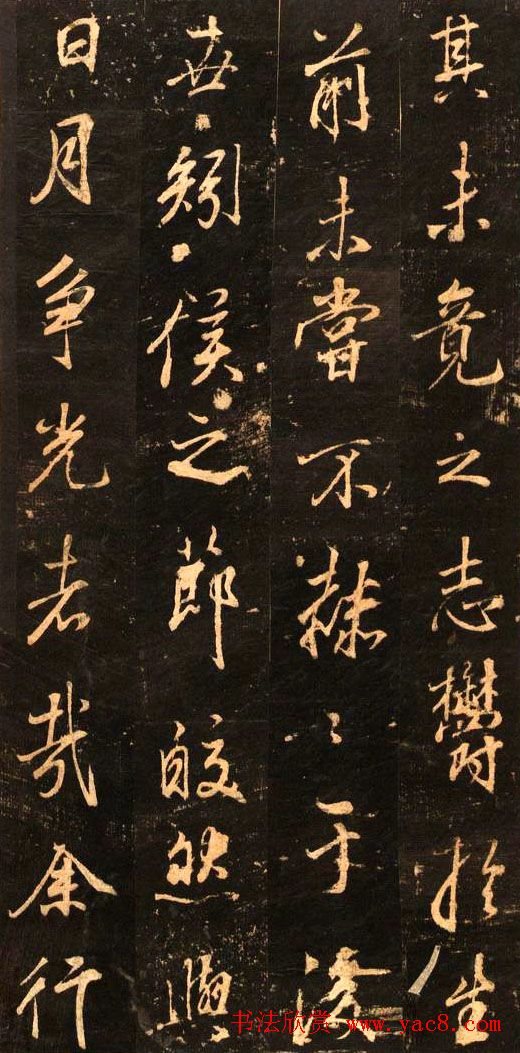 其未竟之志鬱於生
前未嘗不𣗥〻于後
世矧侯之節皎然與
日月争光者哉余行
书法欣赏 www.yac8.com